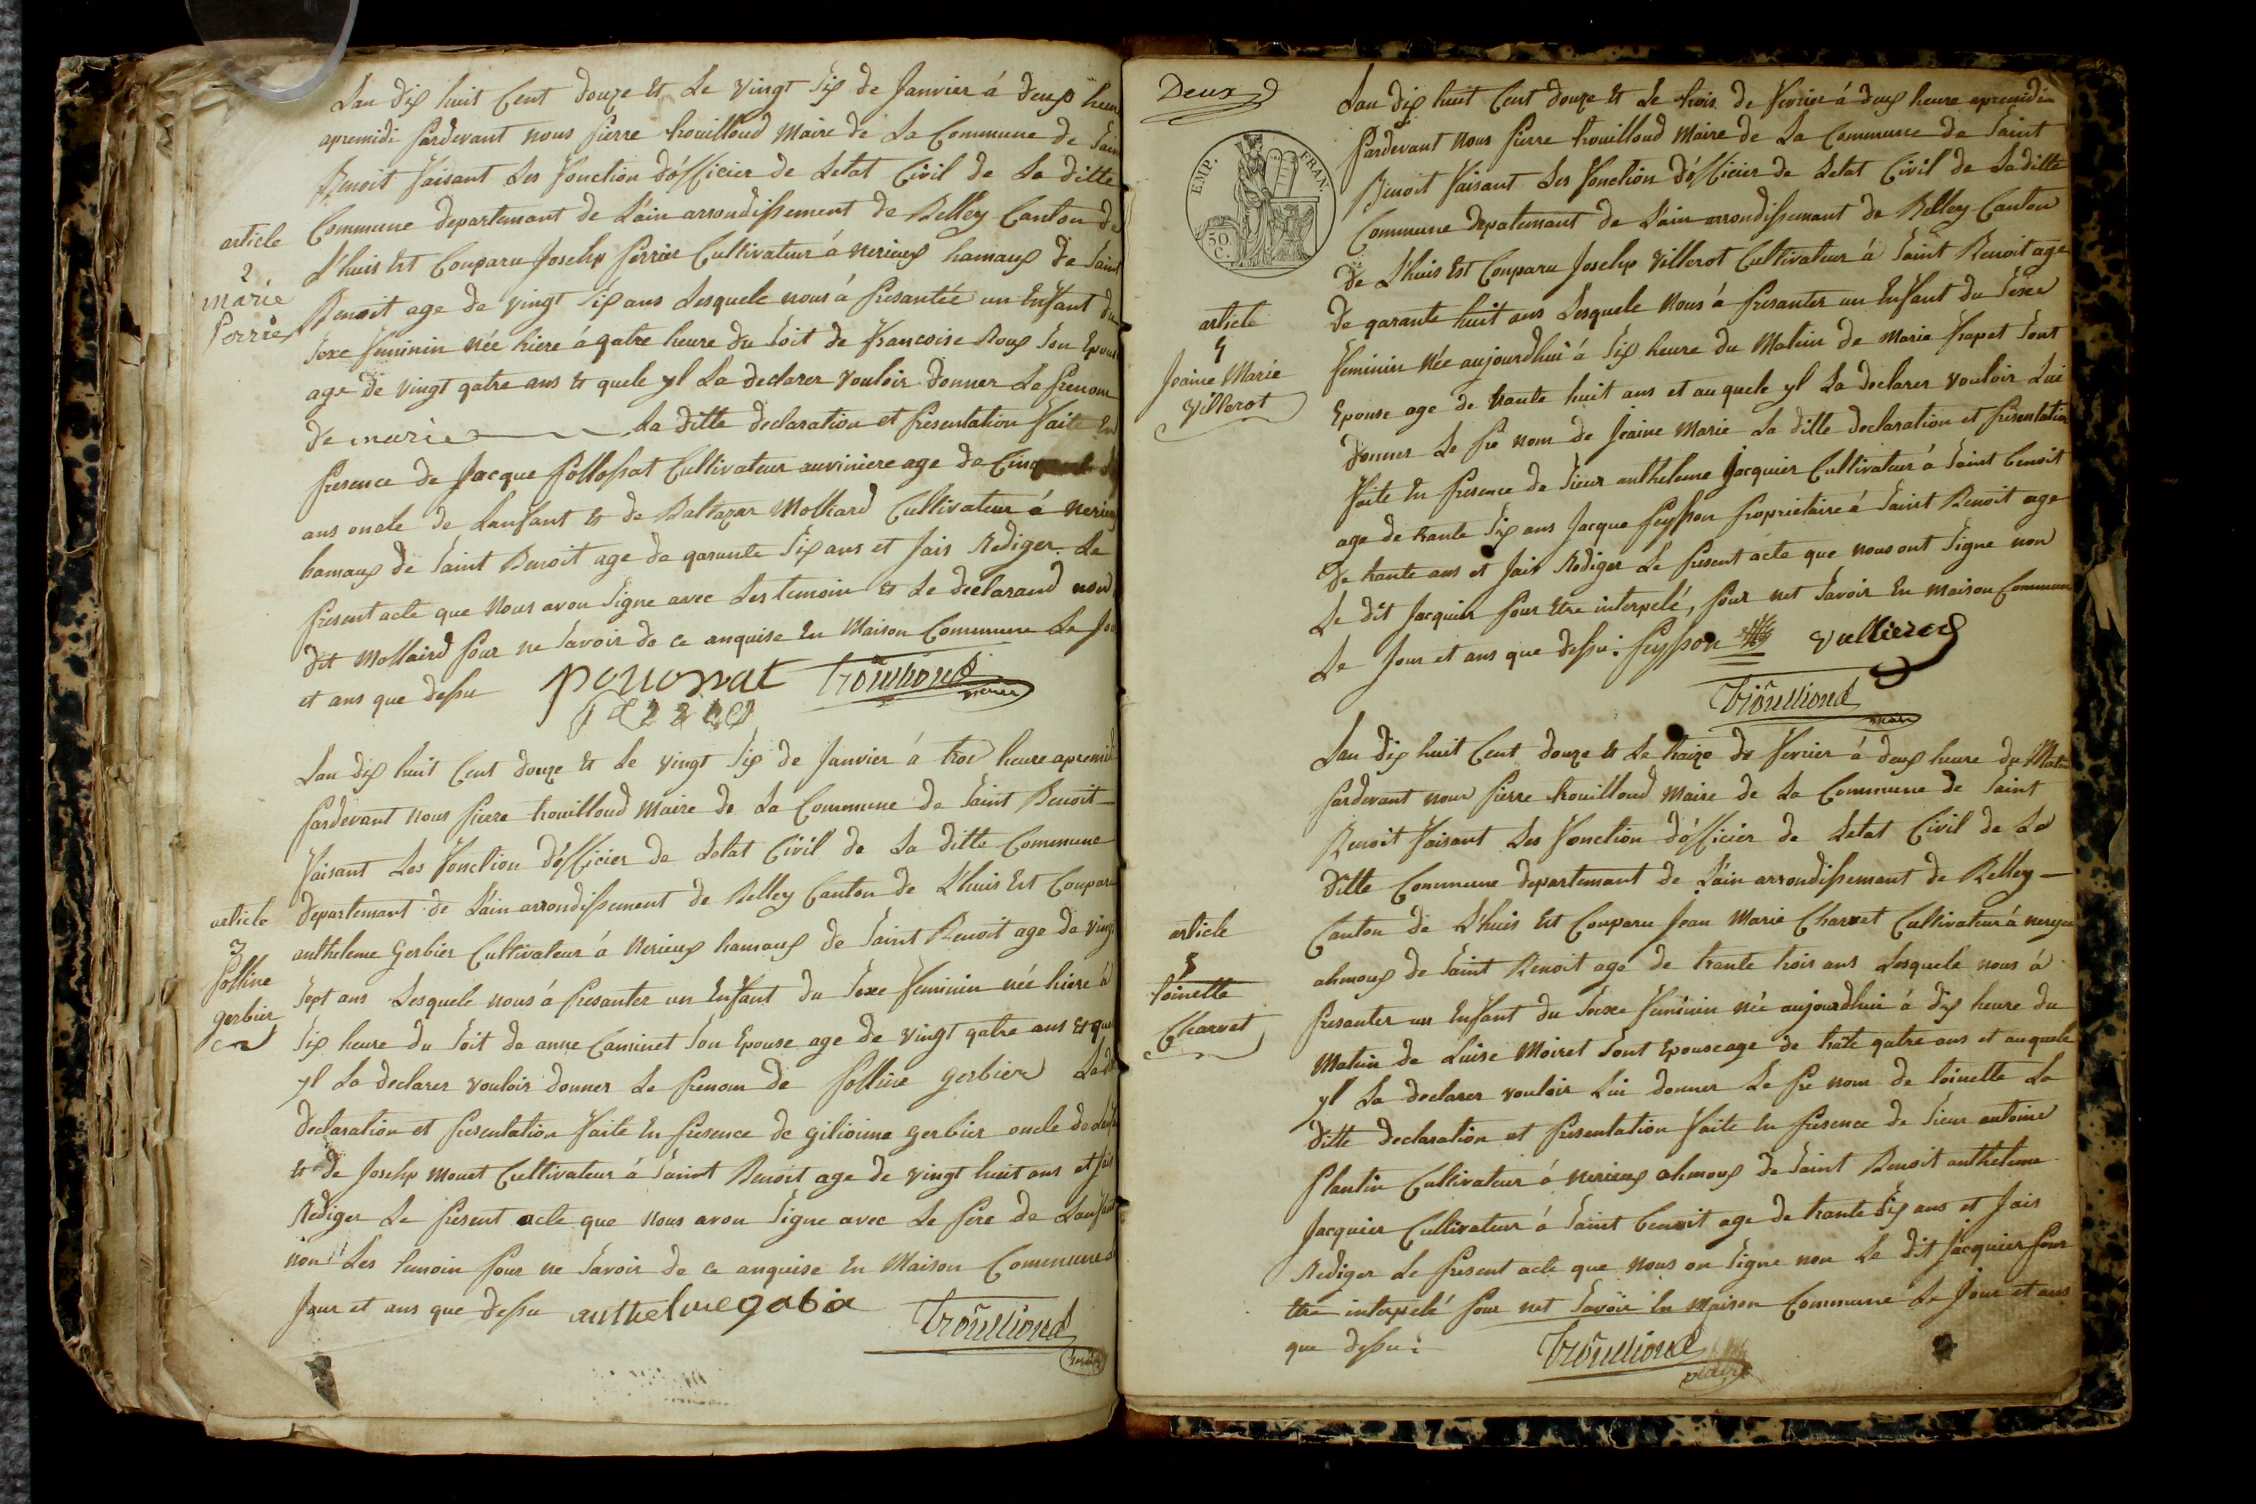 Lan dix huit Cent douze et Le vingt Six de Janvier á deux heure
apremidi pardevant nous pierre trouilloud Maire de La Commune de Saint
Benoit faisant Les fonction dófficier de Letat Civil de La ditte
Commune departemant de Lain arrondissement de Belley Canton de
article
2
marie
perrier
L'huis Est Conparu Joselip perrier Cultivateur á nerieux hamaux de Saint
Benoit age de vingt Six ans Lesquele nous á presantée un Enfant du
Sexe feminin née hiere á qatre heure du Soit de francoise Roux Son Epouse
age de vingt qatre ans et quele yl La declarer vouloir donner Le prenom
de marie La ditte declaration et presentation faite En
presence de Jacque pollossat Cultivateur auviniere age de
ans oncle de Lanfant et de Baltazar Mollard Cultivateur á nerieux
hamaux de Saint Benoit age de qarante Six ans et fais Rediger Le
present acte que Nous avon Signe avec Les temoin et Le declarand non
dit Mollaird pour ne Savoir de ce anquise En Maison Commune Le Jour
et ans que dessu
pollossat trouilloud
maire
Lan dix huit Cent douze et le vingt Six de Janvier á troi heure apremidi
pardevant nous pierre trouilloud maire de La Commune de Saint Benoit
faisant Les fonction dófficier de Letat Civil de La ditte Commune
article
3
polline
gerbier
departemant de Lain arrondissement de Belley Canton de L'huis Est Conparu
antheleme Gerbier Cultivateur á Nerieux hamaux de Saint Benoit age de vingt
Sept ans Lesquele nous á presanter un Enfant du Sexe feminin née hiere á
Six heure du Soit de anne Caminet Son Epouse age de vingt qatre ans et quele
yl La declarer vouloir donner Le prenom de polline gerbier La dit
declaration et presentation faite En presence de gilioime gerbier oncle de
et de Joselip Monet Cultivateur á Saint Benoit age de vingt huit ans et fais
Rediger Le present acte que Nous avon Signe avec Le pere de Lanfant
non Les temoin pour ne Savoir de ce anquise En Maison Commune
Jour et ans que dessu anthelme gabie trouilloud
maire
Deux
EMP. FRAN.
50
C.
Lan dix huit Cent douze et Le trois de fevrier á deux heure apremidi
pardevant nous pierre trouilloud Maire de La Commune de Saint
Benoit faisant Les fonction dófficier de Letat Civil de La ditte
Commune depatemant de Lain arrondissemant de Belley Canton
de L'huis Est Conparu Joselip Villerot Cultivateur á Saint Benoit age
article
4
Jeaine Marie
Villerot
de qarante huit ans Lesquele Nous á presanter un Enfant du Sexe
feminin Née aujourdhui á Six heure du Matin de Marie frapet Sont
Epouse age de trante huit ans et au quele yl La declarer vouloir Lui
donner Le pré nom de Jeaine Marie La ditte declaration et presentation
faite En presence de Sieur antheleme Jacquier Cultivateur á Saint benoit
age de trante Six ans Jacque peysson proprietaire á Saint Benoit age
de trante ans et fais Rediger Le present acte que nous ont Signe non
Le dit Jacquier pour Etre interpelé, pour net Savoir En maison Commune
Le Jour et ans que dessu: peysson
trouilloud
maire
Lan dix huit Cent douze et Le traize de fevrier á deux heure du Matin
pardevant nous pierre trouilloud Maire de La Commune de Saint
Benoit faisant Les fonction dófficier de Letat Civil de La
ditte Commune departemant de Lain arrondissement de Belley
article
5
toinette
Charvet
Canton de L'huis Est Conparu Jean Marie Charvet Cultivateur á
ahmoux de Saint Benoit age de trante trois ans Lesquele nous á
presanter un Enfant du Sexe feminin née aujourdhui á dix heure du
Matin de Luise Moiret Sont Epouse age de trate qatre ans et au quele
yl La declarer vouloir Lui donner Le pré nom de toinette La
ditte declaration et presentation faite En presence de Sieur antoine
plantin Cultivateur á Nerieux ahmoux de Saint Benoit antheleme
Jacquier Cultivateur á Saint benoit age de trante Six ans et fais
Rediger Le present acte que Nous on Signe non Le dit Jacquier pour
Etre interpelé pour net Savoir En Maison Commune Le Jour et ans
que dessu: trouilloud
maire